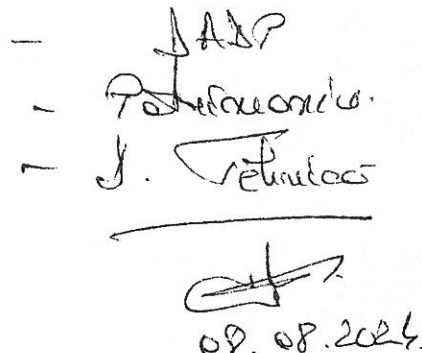 - DADP
- Patrimoniu.
- D. Tehnică
08.08.2024.